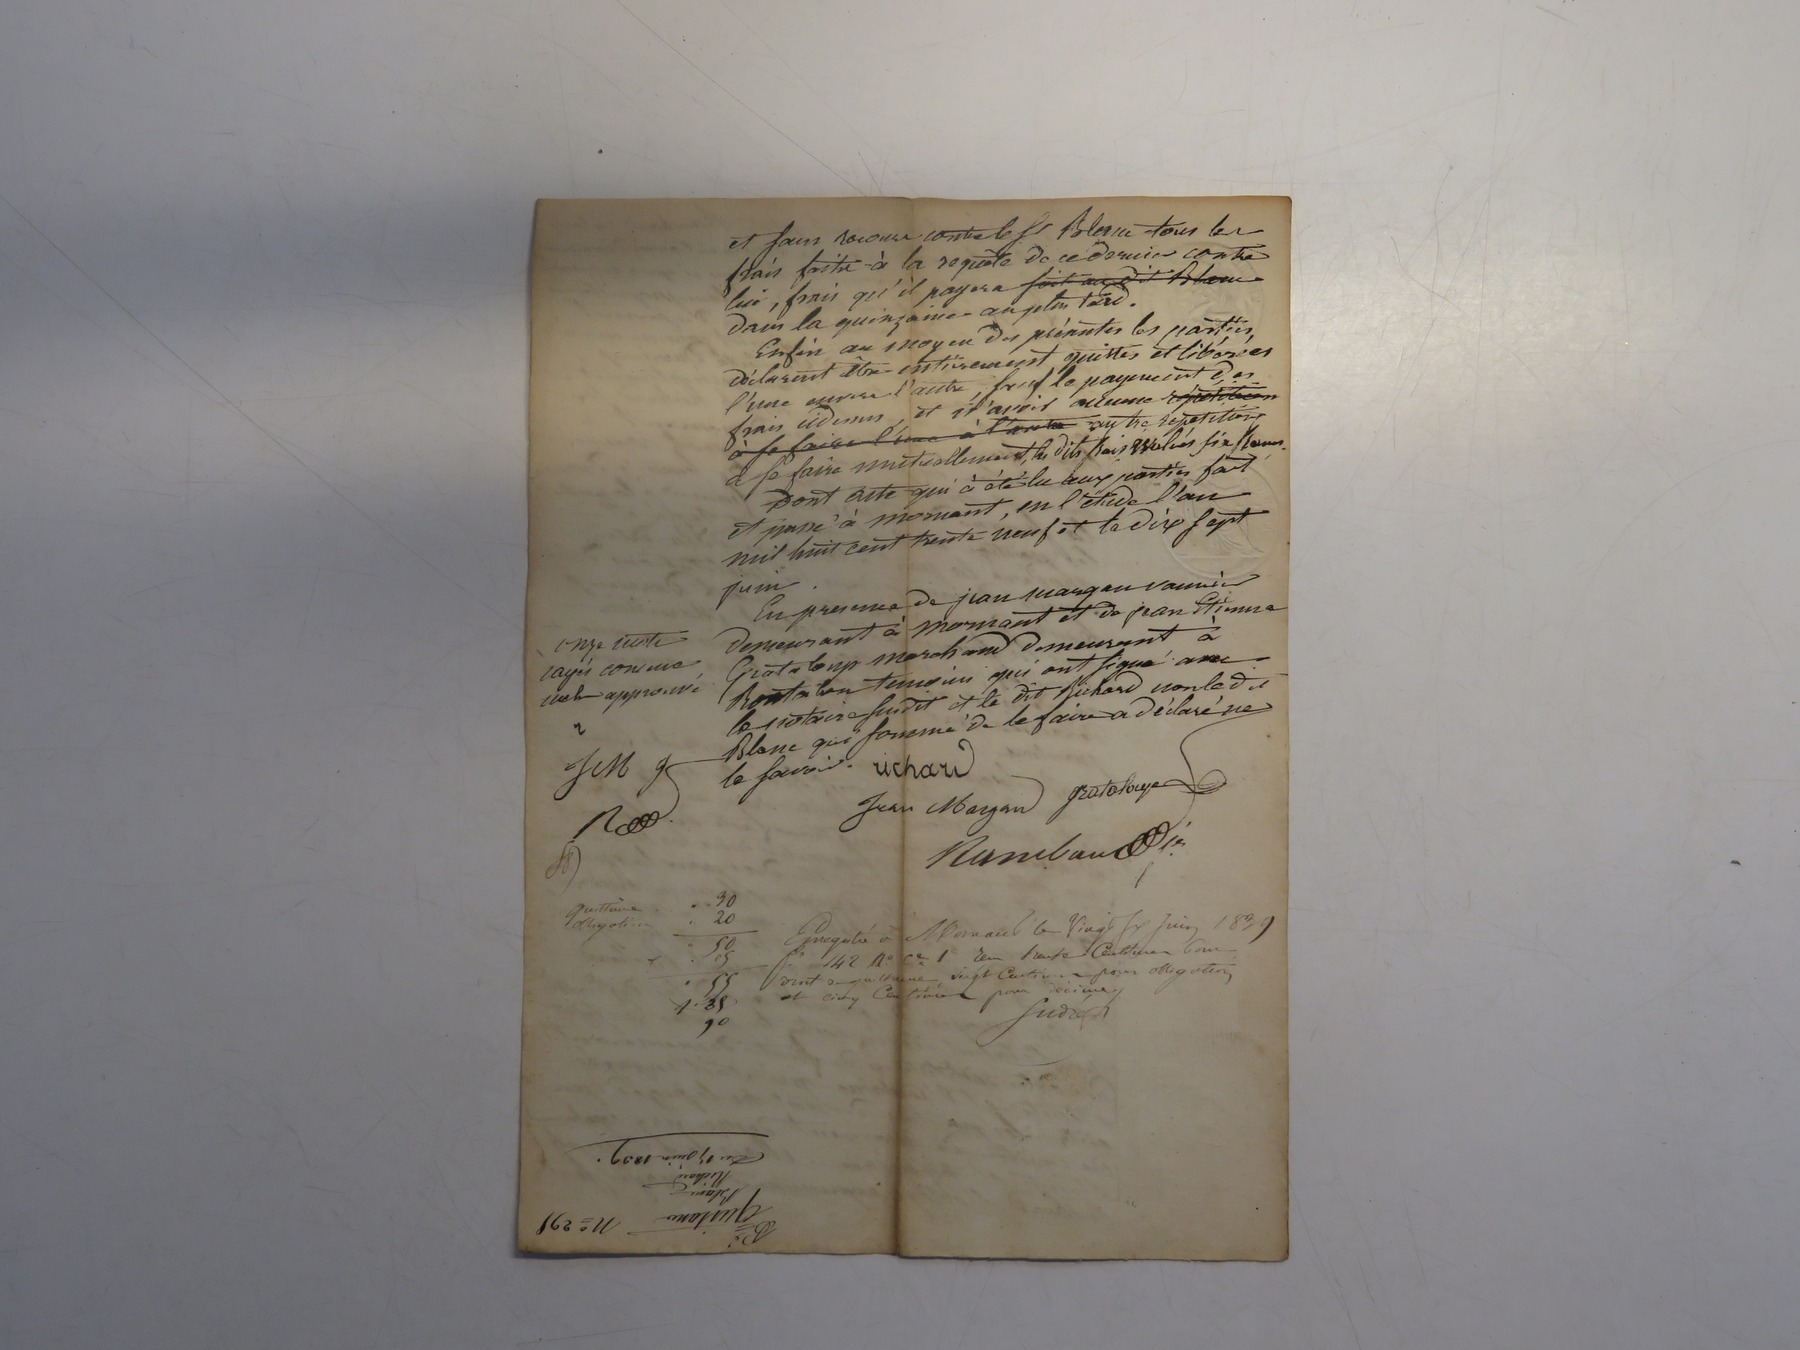 et sans recours contre le Sr Blanc tous les
frais faits à la requête de ce dernier contre
lui, frais qu'il payera soit au dit Blanc
dans la quinzaine au plus tard.
Enfin au moyen des présentes les parties
déclarent être entièrement quittes et libérées
l'une envers l'autre, sauf le payement des
frais cidessus, et n'avoir aucune répétition
à se faire l'une à l'autre autre répétition
à se faire mutuellement, les dits frais six francs.
Dont acte qui à été lu aux parties fait
et passé à mornant, en l'étude l'an
mil huit cent trente neuf et le dix sept
juin.
En presence de jean margan vannier
demeurant à mornant et de jean Etienne
Grataloup marchand demeurant à
Rontalon temoins qui ont signé avec
le notaire susdit et le dit Richard non le dit
Blanc qui sommé de le faire a déclaré ne
le savoir.
onze mots
rayés comme
nuls approuvé
JM g
R
richard
Jean Margan grataloup
Rambaud
quittance .. 30
obligation . 20
50
05
55
1.35
90
Enregistré à Mornant le Vingt six Juin 1839
f° 142 R° Ce 1e reçu trente Centimes pour
quittance, vingt Centimes pour obligation
et cinq Centimes pour décime
N° 291
Quittance
Blanc
Richard
Du 17 juin 1839.